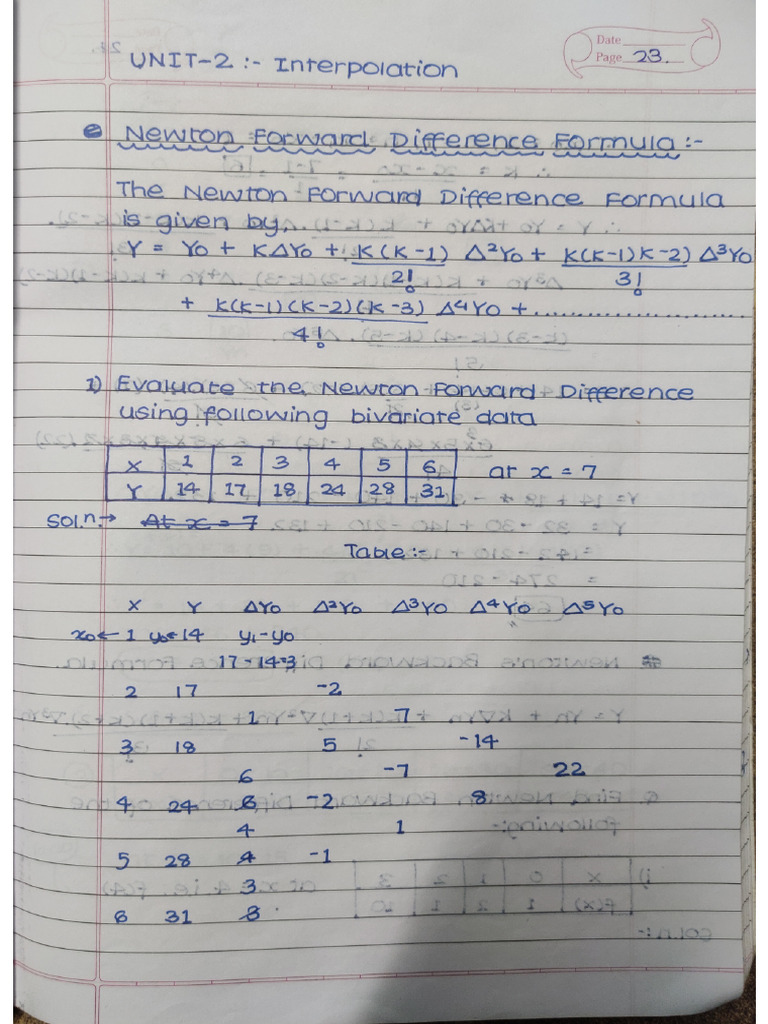 Date
Page 23.
UNIT-2 :- Interpolation
Newton Forward Difference Formula :-
The Newton Forward Difference Formula
is given by,
Y = Y0 + KΔY0 + K(K-1)/2! Δ²Y0 + K(K-1)K-2)/3! Δ³Y0
+ K(K-1)(K-2)(K-3)/4! Δ⁴Y0 + ..................
1) Evaluate the Newton Forward Difference
using following bivariate data
X 1 2 3 4 5 6 at x = 7
Y 14 17 18 24 28 31
Soln.→ At x = 7
Table :-
X Y ΔY0 Δ²Y0 Δ³Y0 Δ⁴Y0 Δ⁵Y0
x0 ← 1 y0 ← 14 y1 - y0
17 - 14 = 3
2 17 -2
1 7
3 18 5 -14
6 -7 22
4 24 6 -2 8
4 1
5 28 4 -1
3
6 31 3